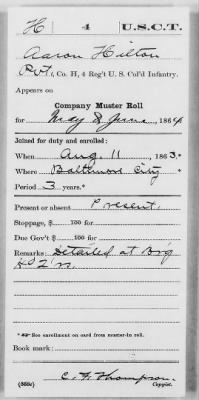 H 4 U.S.C.T.
Aaron Hilton
Pvt., Co. H, 4 Reg't U. S. Col'd Infantry.
Appears on
Company Muster Roll
for May & June, 1864.
Joined for duty and enrolled:
When Aug. 11, 1863.*
Where Baltimore City
Period 3 years.*
Present or absent Present.
Stoppage, $ 100 for
Due Gov't $ 100 for
Remarks: Detailed at Brig
Hd Q'rs.
* See enrollment on card from muster-in roll.
Book mark:
C. F. Thompson
(358c) Copyist.